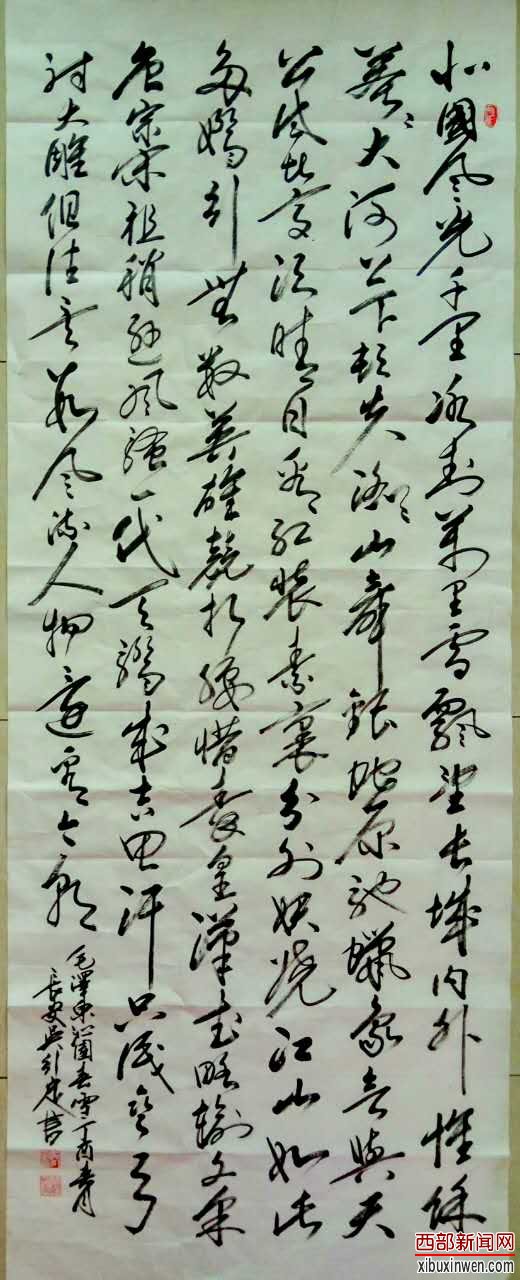 北國风光千里冰封萬里雪飄望长城内外惟餘
莽莽大河上下頓失滔滔山舞銀蛇原馳蠟象欲與天
公试比高须晴日看红装素裹分外妖娆江山如此
多嬌引無數英雄競折腰惜秦皇漢武略输文采
唐宗宋祖稍遜風骚一代天驕成吉思汗只識弯弓
射大雕俱往矣數风流人物還看今朝
毛澤東沁園春雪丁酉春月
長安吴引書
西部新闻网
xibuxinwen.com